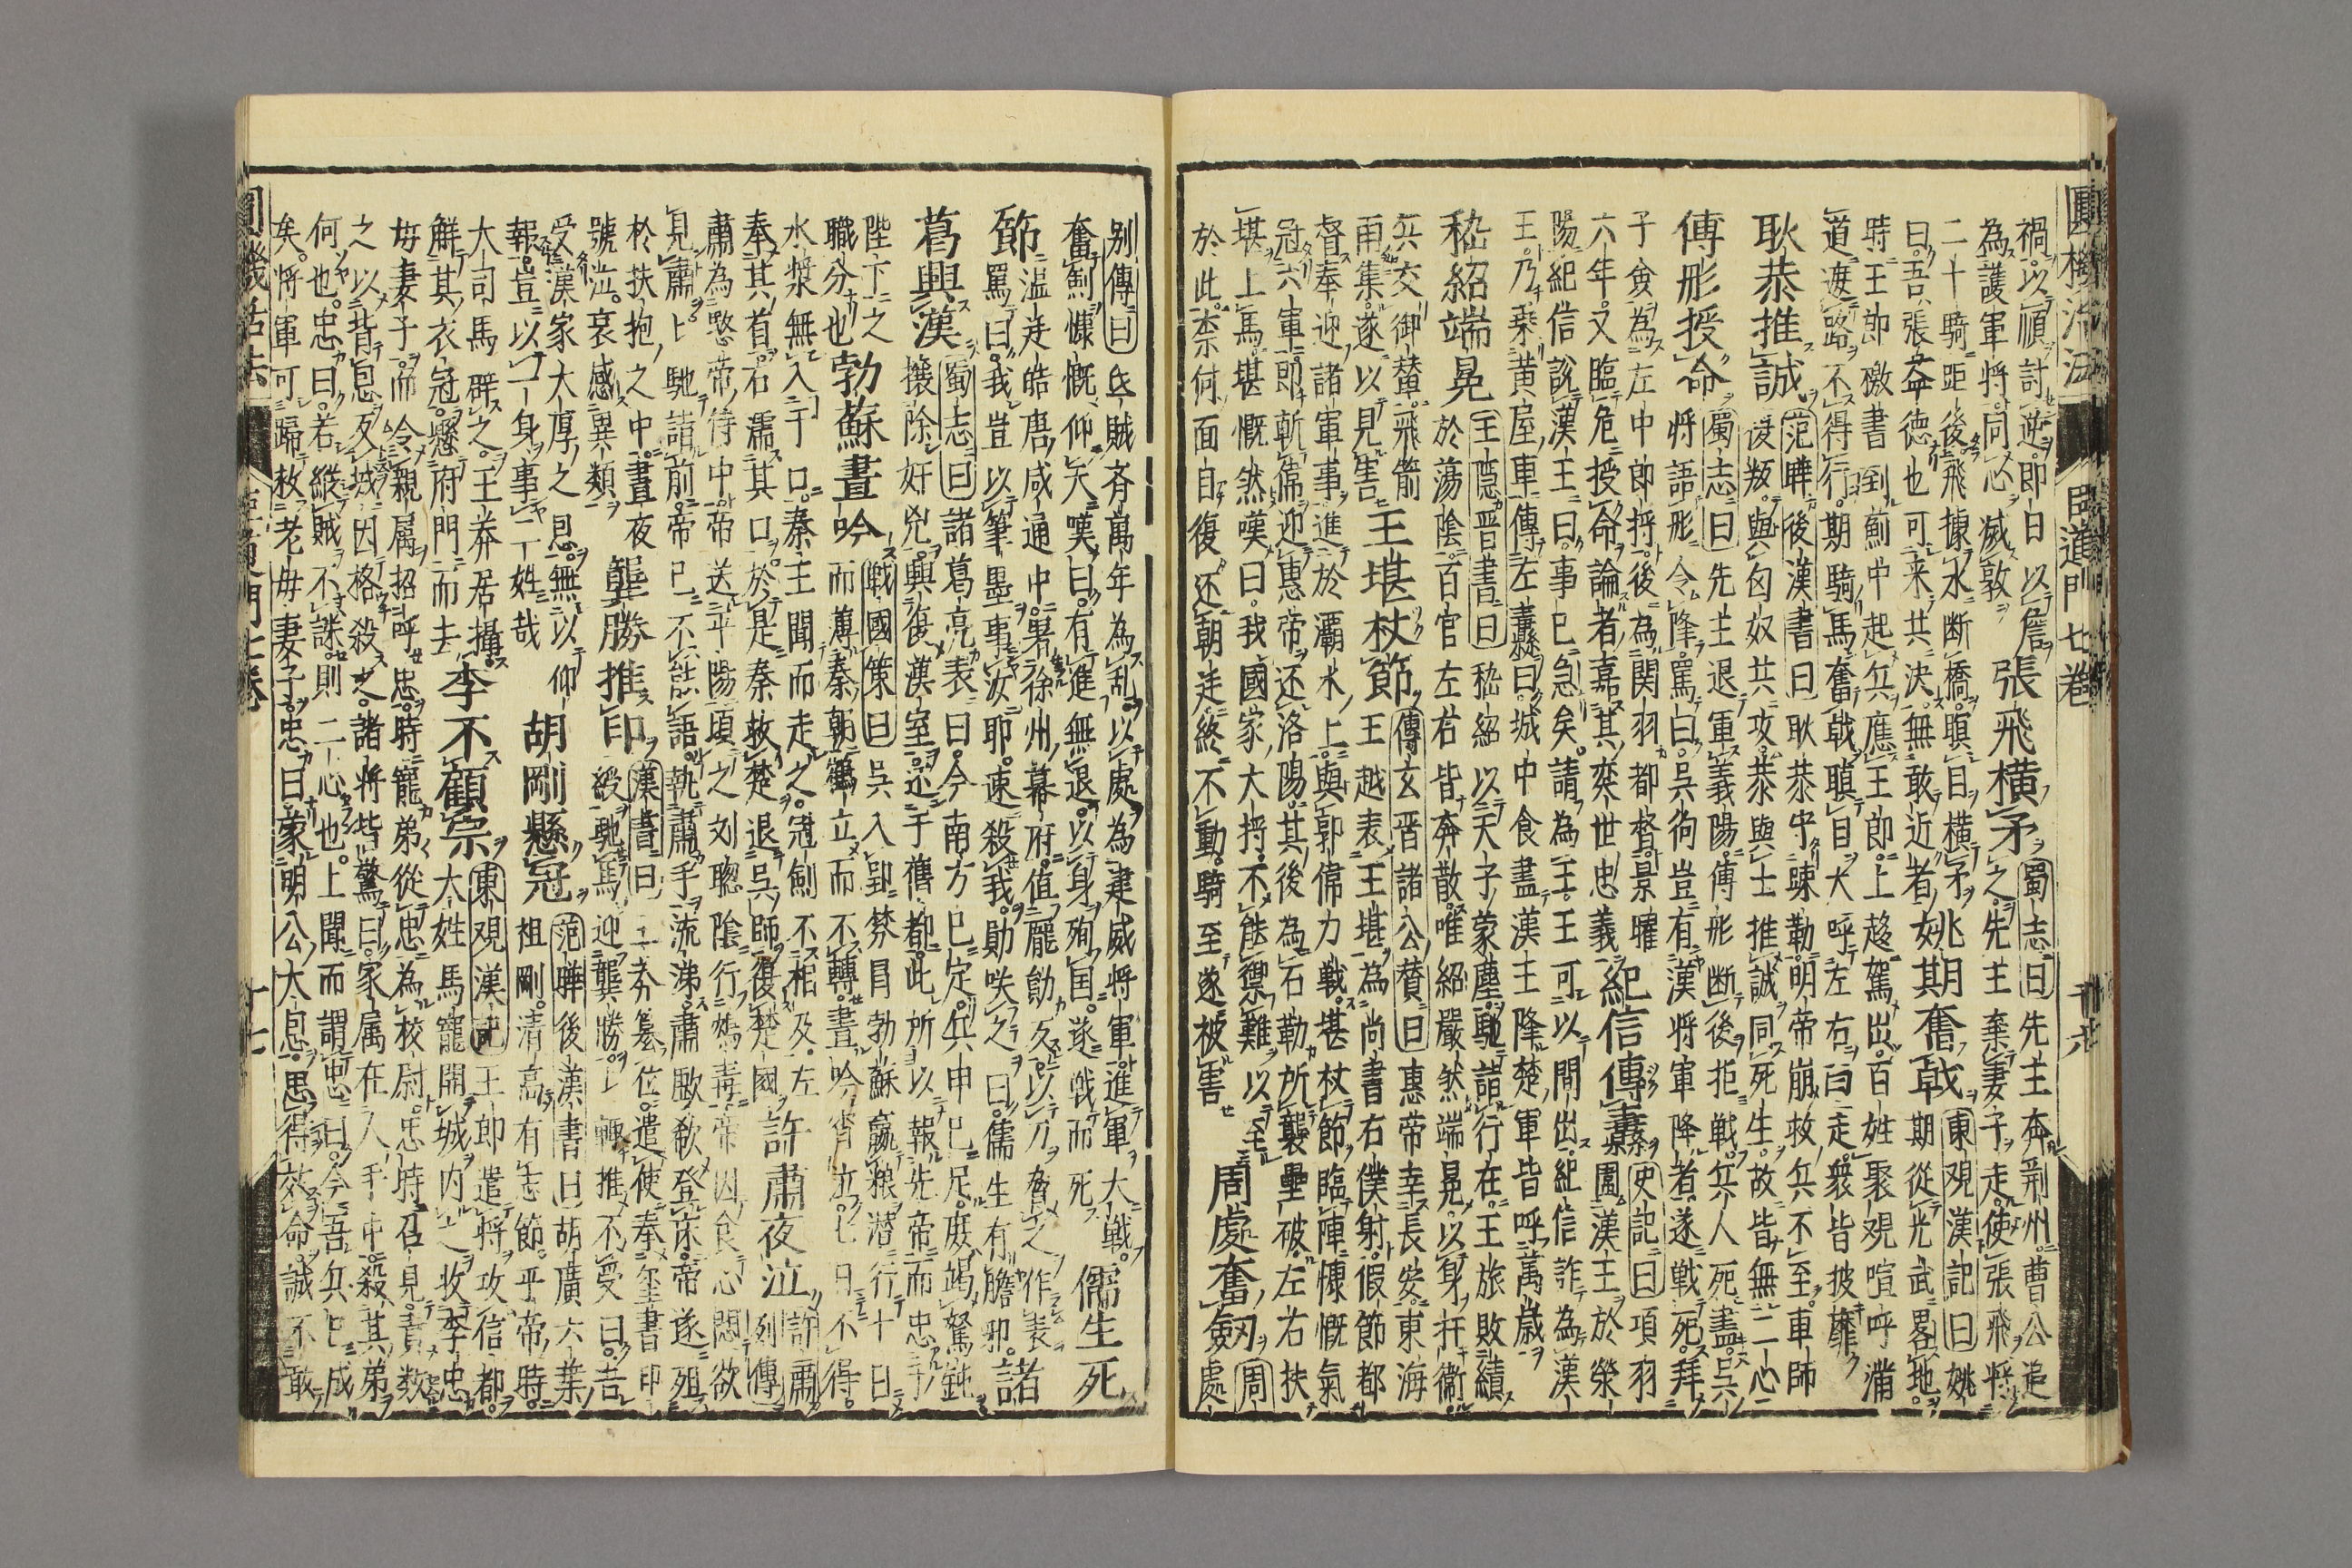 圓機活法 臣道門七卷
禍以順討逆即日以詹 張飛横矛 蜀志曰先主奔荆州曹公追
為護軍将同心滅敦 之先主棄妻子走使張飛将
二十騎距後飛據水断橋瞋目横矛 姚期奮戟 東觀漢記曰姚
曰吾張益德也可来共決無敢近者 期從光武畧地
時王郎檄書到薊中起兵應王郎上趨駕出百姓聚觀喧呼滿
道遮路不得行期騎馬奮戟瞋目大呼左右曰走衆皆披靡
耿恭推誠 范曄後漢書曰耿恭守疎勒明帝崩救兵不至車師
復叛與匈奴共攻恭與士推誠同死生故皆無二心
傅彤授命 蜀志曰先主退軍義陽傅彤断後拒戦兵人死盡吳
将語彤令降罵曰吳狗豈有漢将軍降者遂戦死拜
子僉為左中郎将後為関羽都督景曜
六年又臨危授命論者嘉其奕世忠義 紀信傳纛 史記曰項羽
圍漢王於滎
陽紀信説漢王曰事已急矣請為王王可以間出紀信詐為漢
王乃乗黄屋車傳左纛曰城中食盡漢王降楚軍皆呼萬歳
嵇紹端冕 王隱晋書曰嵇紹以天子蒙塵馳詣行在王旅敗績
於蕩陰百官左右皆奔散唯紹嚴然端冕以身扞衛
兵交御輦飛箭
雨集遂以見害 王堪杖節 傅玄晋諸公賛曰惠帝幸長安東海
王越表王堪為尚書右僕射假節都
督奉迎諸軍事進於灞水上與郭偉力戦堪杖節臨陣慷慨氣
冠六軍即斬偉迎惠帝还洛陽其後為石勒所襲壘破左右扶
堪上馬堪慨然嘆曰我國家大将不能禦難以至
於此柰何面自復还朝走終不動騎至遂被害 周處奮劒 周
處
别傳曰氐賊斉萬年為亂以處為建威将軍進軍大戦
奮劒慷慨仰天嘆曰有進無退以身殉囯遂戦而死 儒生死
節 温走皓唐咸通中署徐州幕府值龎勛反以刀脅之作表
罵曰我豈以筆墨事汝耶速殺我勛咲之曰儒生有膽耶 諸
葛興漢 蜀志曰諸葛亮表曰今南方已定兵甲已足庶竭駑鈍
攘除奸兇興復漢室还于舊都此所以報先帝而忠于
陛下之
職分也 勃蘇晝吟 戦國策曰吳入郢棼冒勃蘇贏粮潜行十日
而薄秦朝鶴立而不轉晝吟宵泣七日不得
水漿無入于口秦王聞而走之冠劒不相及左
奉其首右濡其口於是秦救楚退吳師復楚國 許肅夜泣 許肅
列傳
肅為愍帝侍中帝送平陽頃之刘聰陰行鴆毒帝因食心悶欲
見肅卜馳請前帝已不䏻語執肅手流涕肅歔欷登床帝遂殂
於扶抱之中晝夜
號泣哀感異類 龔勝推印 漢書曰王莽簒位遣使奉璽書印
綬馳馬迎龔勝勝輙推不受曰吾
受漢家大厚之恩無以仰
報豈以一身事二姓哉 胡剛懸冠 范曄後漢書曰胡廣六葉
祖剛清高有志節平帝時
大司馬辟之王莽居攝
解其衣冠懸府門而去 李不顧宗 東觀漢記王郎遣将攻信都
大姓馬寵開城内之收李忠
母妻子而令親属招呼忠時寵弟從忠為校尉忠時召見責数
之以背恩反城因格殺之諸将皆驚曰家属在人手中殺其弟
何也忠曰若縱賊不誅則二心也上聞而謂忠曰今吾兵已成
矣将軍可歸救老母妻子忠曰蒙明公大恩思得效命誠不敢